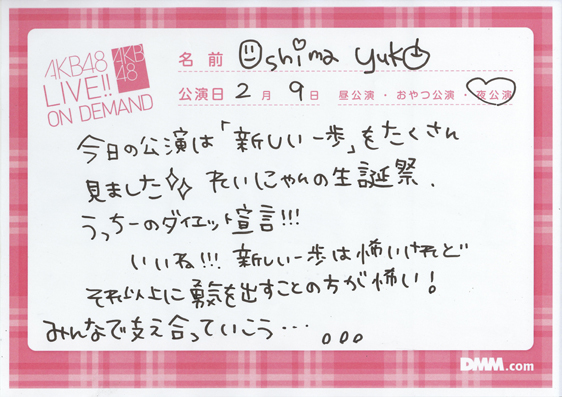 AKB48
LIVE!!
ON DEMAND
AKB
48
名前 Oshima yuko
公演日 2月 9日 昼公演・おやつ公演・夜公演
今日の公演は「新しい一歩」をたくさん
見ました れいにゃんの生誕祭、
うっちーのダイエット宣言!!!
いいね!!! 新しい一歩は怖いけれど
それ以上に勇気を出すことの方が怖い!
みんなで支え合っていこう… 。。。
DMM.com